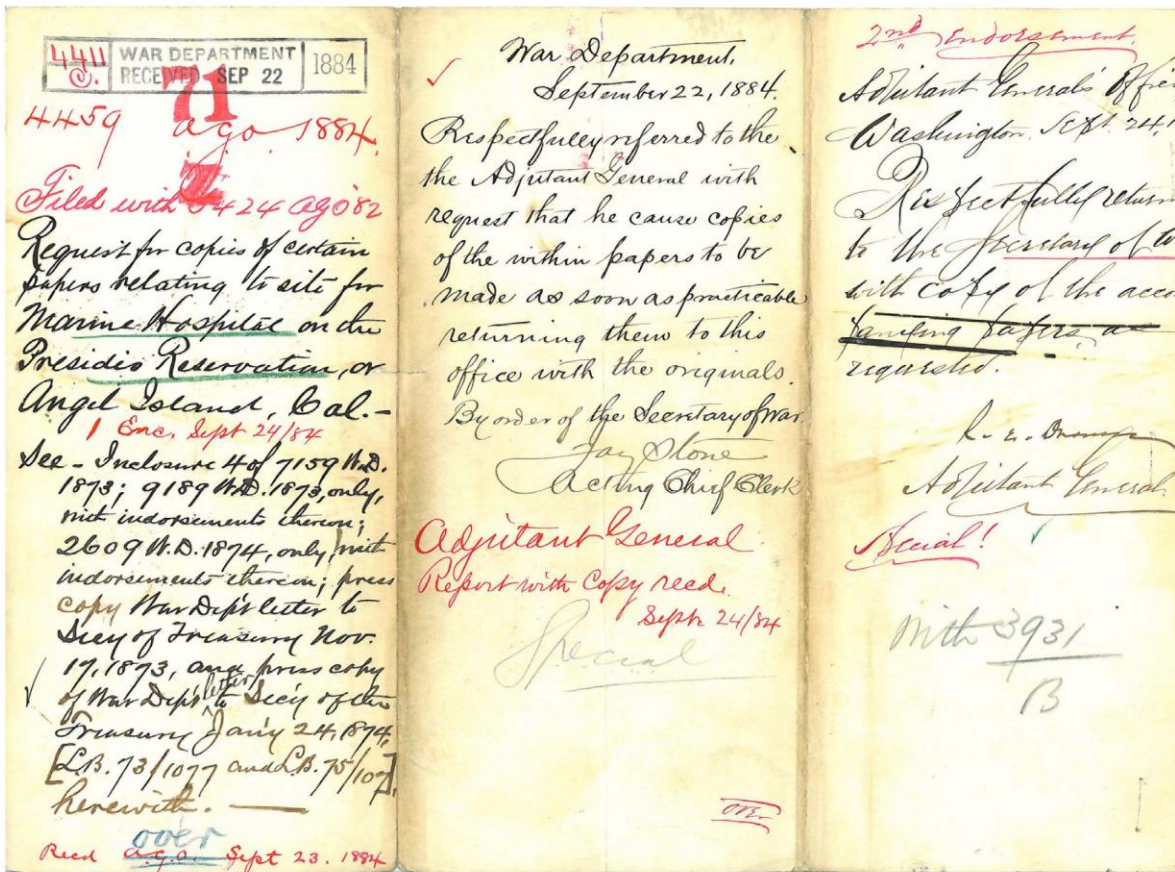 4411
S.
WAR DEPARTMENT
RECEIVED SEP 22
1884
71
4459 a.g.o. 1884.
Z
Filed with 5424 ago '82
Request for copies of certain
papers relating to site for
Marine Hospital on the
Presidio Reservation, or
Angel Island, Cal. -
1 Enc. Sept 24/84
See - Inclosure 4 of 7159 W.D.
1873; 9189 W.D. 1873, only,
with indorsements thereon;
2609 W.D. 1874, only, with
indorsements thereon; press
copy War Dep't letter to
Sec'y of Treasury Nov.
17, 1873, and press copy
of War Dep't letter to Sec'y of the
Treasury Jan'y 24, 1874,
[L.B. 73/1077 and L.B. 75/107],
herewith. —
over
Recd a.g.o. Sept 23. 1884
War Department,
September 22, 1884.
Respectfully referred to the
the Adjutant General with
request that he cause copies
of the within papers to be
made as soon as practicable
returning them to this
office with the originals.
By order of the Secretary of War.
Jay Stone
Acting Chief Clerk
Adjutant General
Report with Copy recd.
Sept 24/84
Special
over
2nd Endorsement.
Adjutant General's Offic
Washington. Sept. 24, 1
Respectfully return
to the Secretary of W
with copy of the acco
panying papers, as
requested.
R. C. Drum
Adjutant General
Special!
With 3931
B